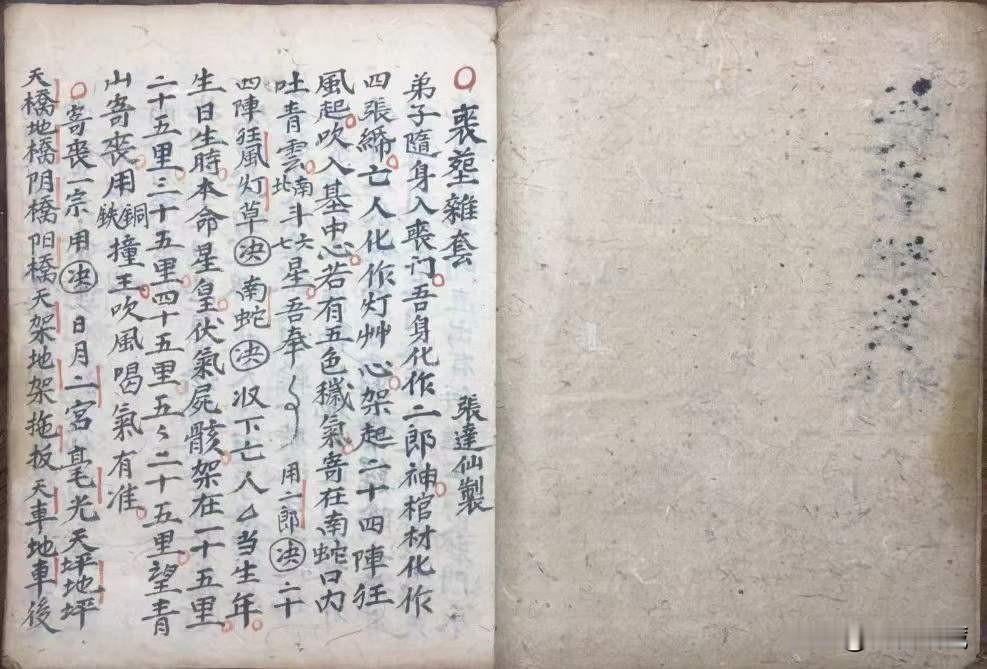 喪塟雜套 張達仙製
弟子隨身入喪门吾身化作二郎神棺材化作
四張締亡人化作灯艸心架起二十四陣狂
風起吹入基中心若有五色穢氣寄在南蛇口内
吐青雲南北斗六七星吾奉 用二郎决二十
四陣狂風灯草决南蛇决収下亡人厶当生年
生日生時本命星皇伏氣屍骸架在一十五里
二十五里三十五里四十五里五々二十五里望青
山寄喪用銅鉄撞王吹風喝氣有准
寄喪一宗用决日月二宮毫光天坪地坪
天橋地橋阴橋阳橋天架地架拖板天車地車後